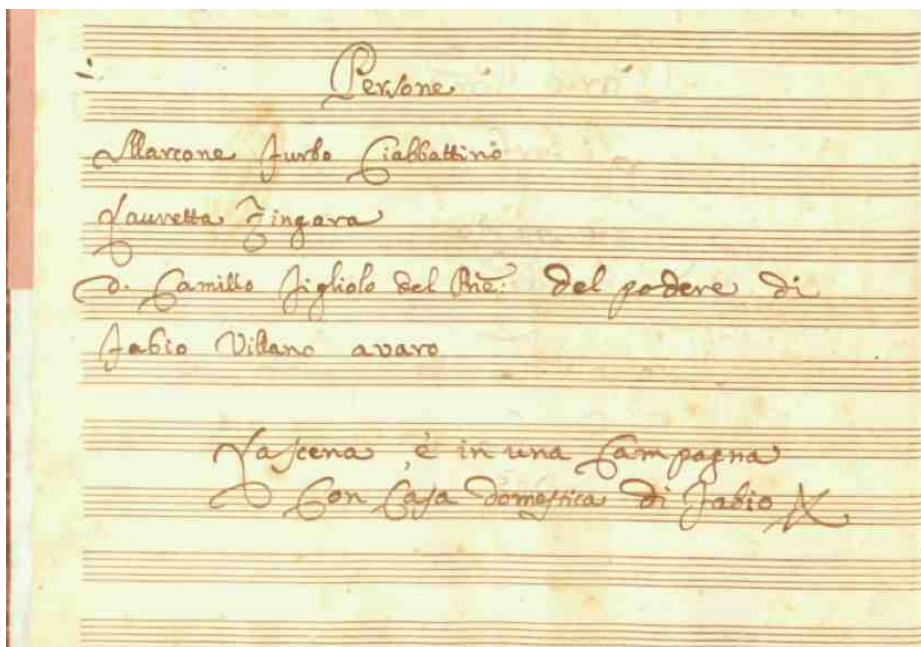 Persone
Marcone furbo Ciabbattino
Lauretta Zingara
D. Camillo figliolo del Prne: del podere di
Fabio Villano avaro
La scena è in una Campagna
Con Casa domestica di Fabio